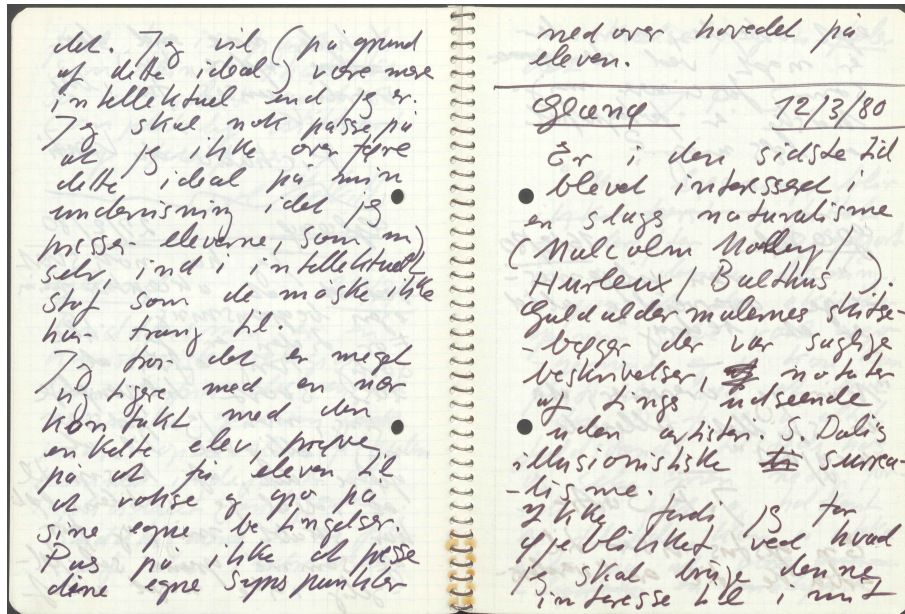 det. Jeg vil (på grund
af dette ideal) være mere
intellektuel end jeg er.
Jeg skal nok passe på
at jeg ikke overføre
dette ideal på min
undervisning idet jeg
presser eleverne, som m
selv, ind i intellektuelt
stof som de måske ikke
har trang til.
Jeg tror det er meget
vigtigere med en nær
kontakt med den
enkelte elev, prøve
på at få eleven til
at vokse og gro på
sine egne betingelser.
Pas på ikke at presse
dine egne synspunkter
ned over hovedet på
eleven.
12/3/80
Er i den sidste tid
blevet interesseret i
en slags naturalisme
(Malcolm Morley /
Hurleux / Balthus).
Guldaldermalernes skitse-
-bøger der var saglige
beskrivelser, notater
af tings udseende
uden artisteri. S. Dalis
illusionistiske surrea-
-lisme.
Ikke fordi jeg for
øjeblikket ved hvad
jeg skal bruge denne
interesse til i mit